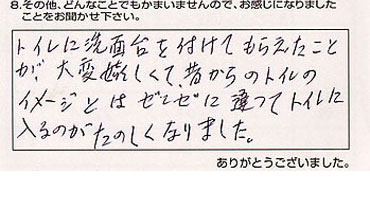 8.その他、どんなことでもかまいませんので、お感じになりました
ことをお聞かせ下さい。
トイレに洗面台を付けてもらえたこと
が、大変嬉しくて、昔からのトイレの
イメージとはゼンゼンに違ってトイレに
入るのがたのしくなりました。
ありがとうございました。